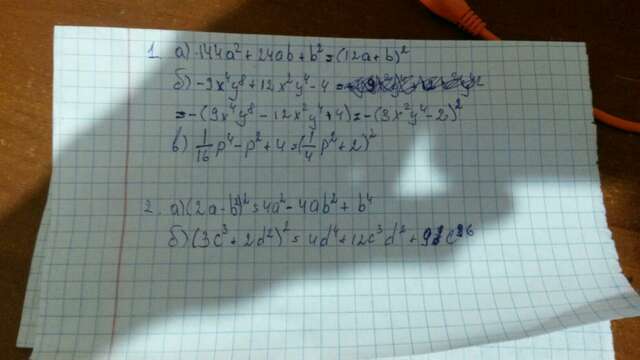 1. а) 144a² + 24ab + b² = (12a + b)²
б) -9x⁴y⁸ + 12x²y⁴ - 4 =
= -(9x⁴y⁸ - 12x²y⁴ + 4) = -(3x²y⁴ - 2)²
в) 1/16 p⁴ - p² + 4 = (1/4 p² + 2)²
2. а) (2a - b²)² = 4a² - 4ab² + b⁴
б) (3c³ + 2d²)² = 4d⁴ + 12c³d² + 9c⁶